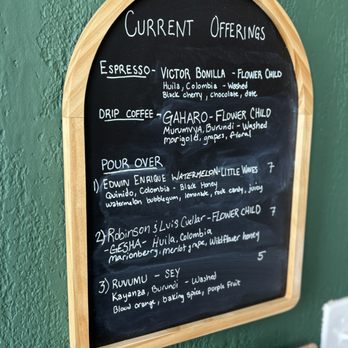 CURRENT OFFERINGS
ESPRESSO - VICTOR BONILLA - FLOWER CHILD
Huila, Colombia - Washed
Black cherry, chocolate, date
DRIP COFFEE - GAHARO - FLOWER CHILD
Murumvya, Burundi - Washed
marigold, grapes, floral
POUR OVER
1) EDWIN ENRIQUE WATERMELON - LITTLE WAVES 7
Quindio, Colombia - Black Honey
watermelon bubblegum, lemonade, rock candy, juicy
2) Robinson & Luis Cuellar - FLOWER CHILD 7
- GESHA - Huila, Colombia
marionberry, merlot grape, wildflower honey
3) RUVUMU - SEY 5
Kayanza, Burundi - Washed
Blood orange, baking spice, purple fruit